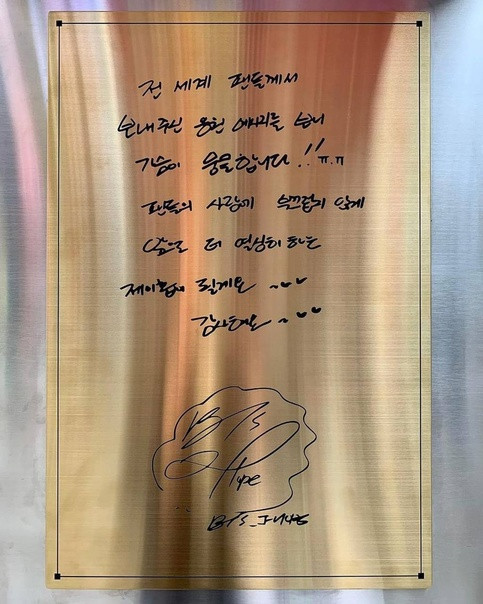 전 세계 팬들께서
보내주신 응원 메시지를 보니
가슴이 뭉클합니다!! ㅠ.ㅠ
팬들의 사랑에 부끄럽지 않게
앞으로 더 열심히 하는
제이홉이 될게요 ~
감사해요 ~
BTS
Hope
BTS_J-HOPE